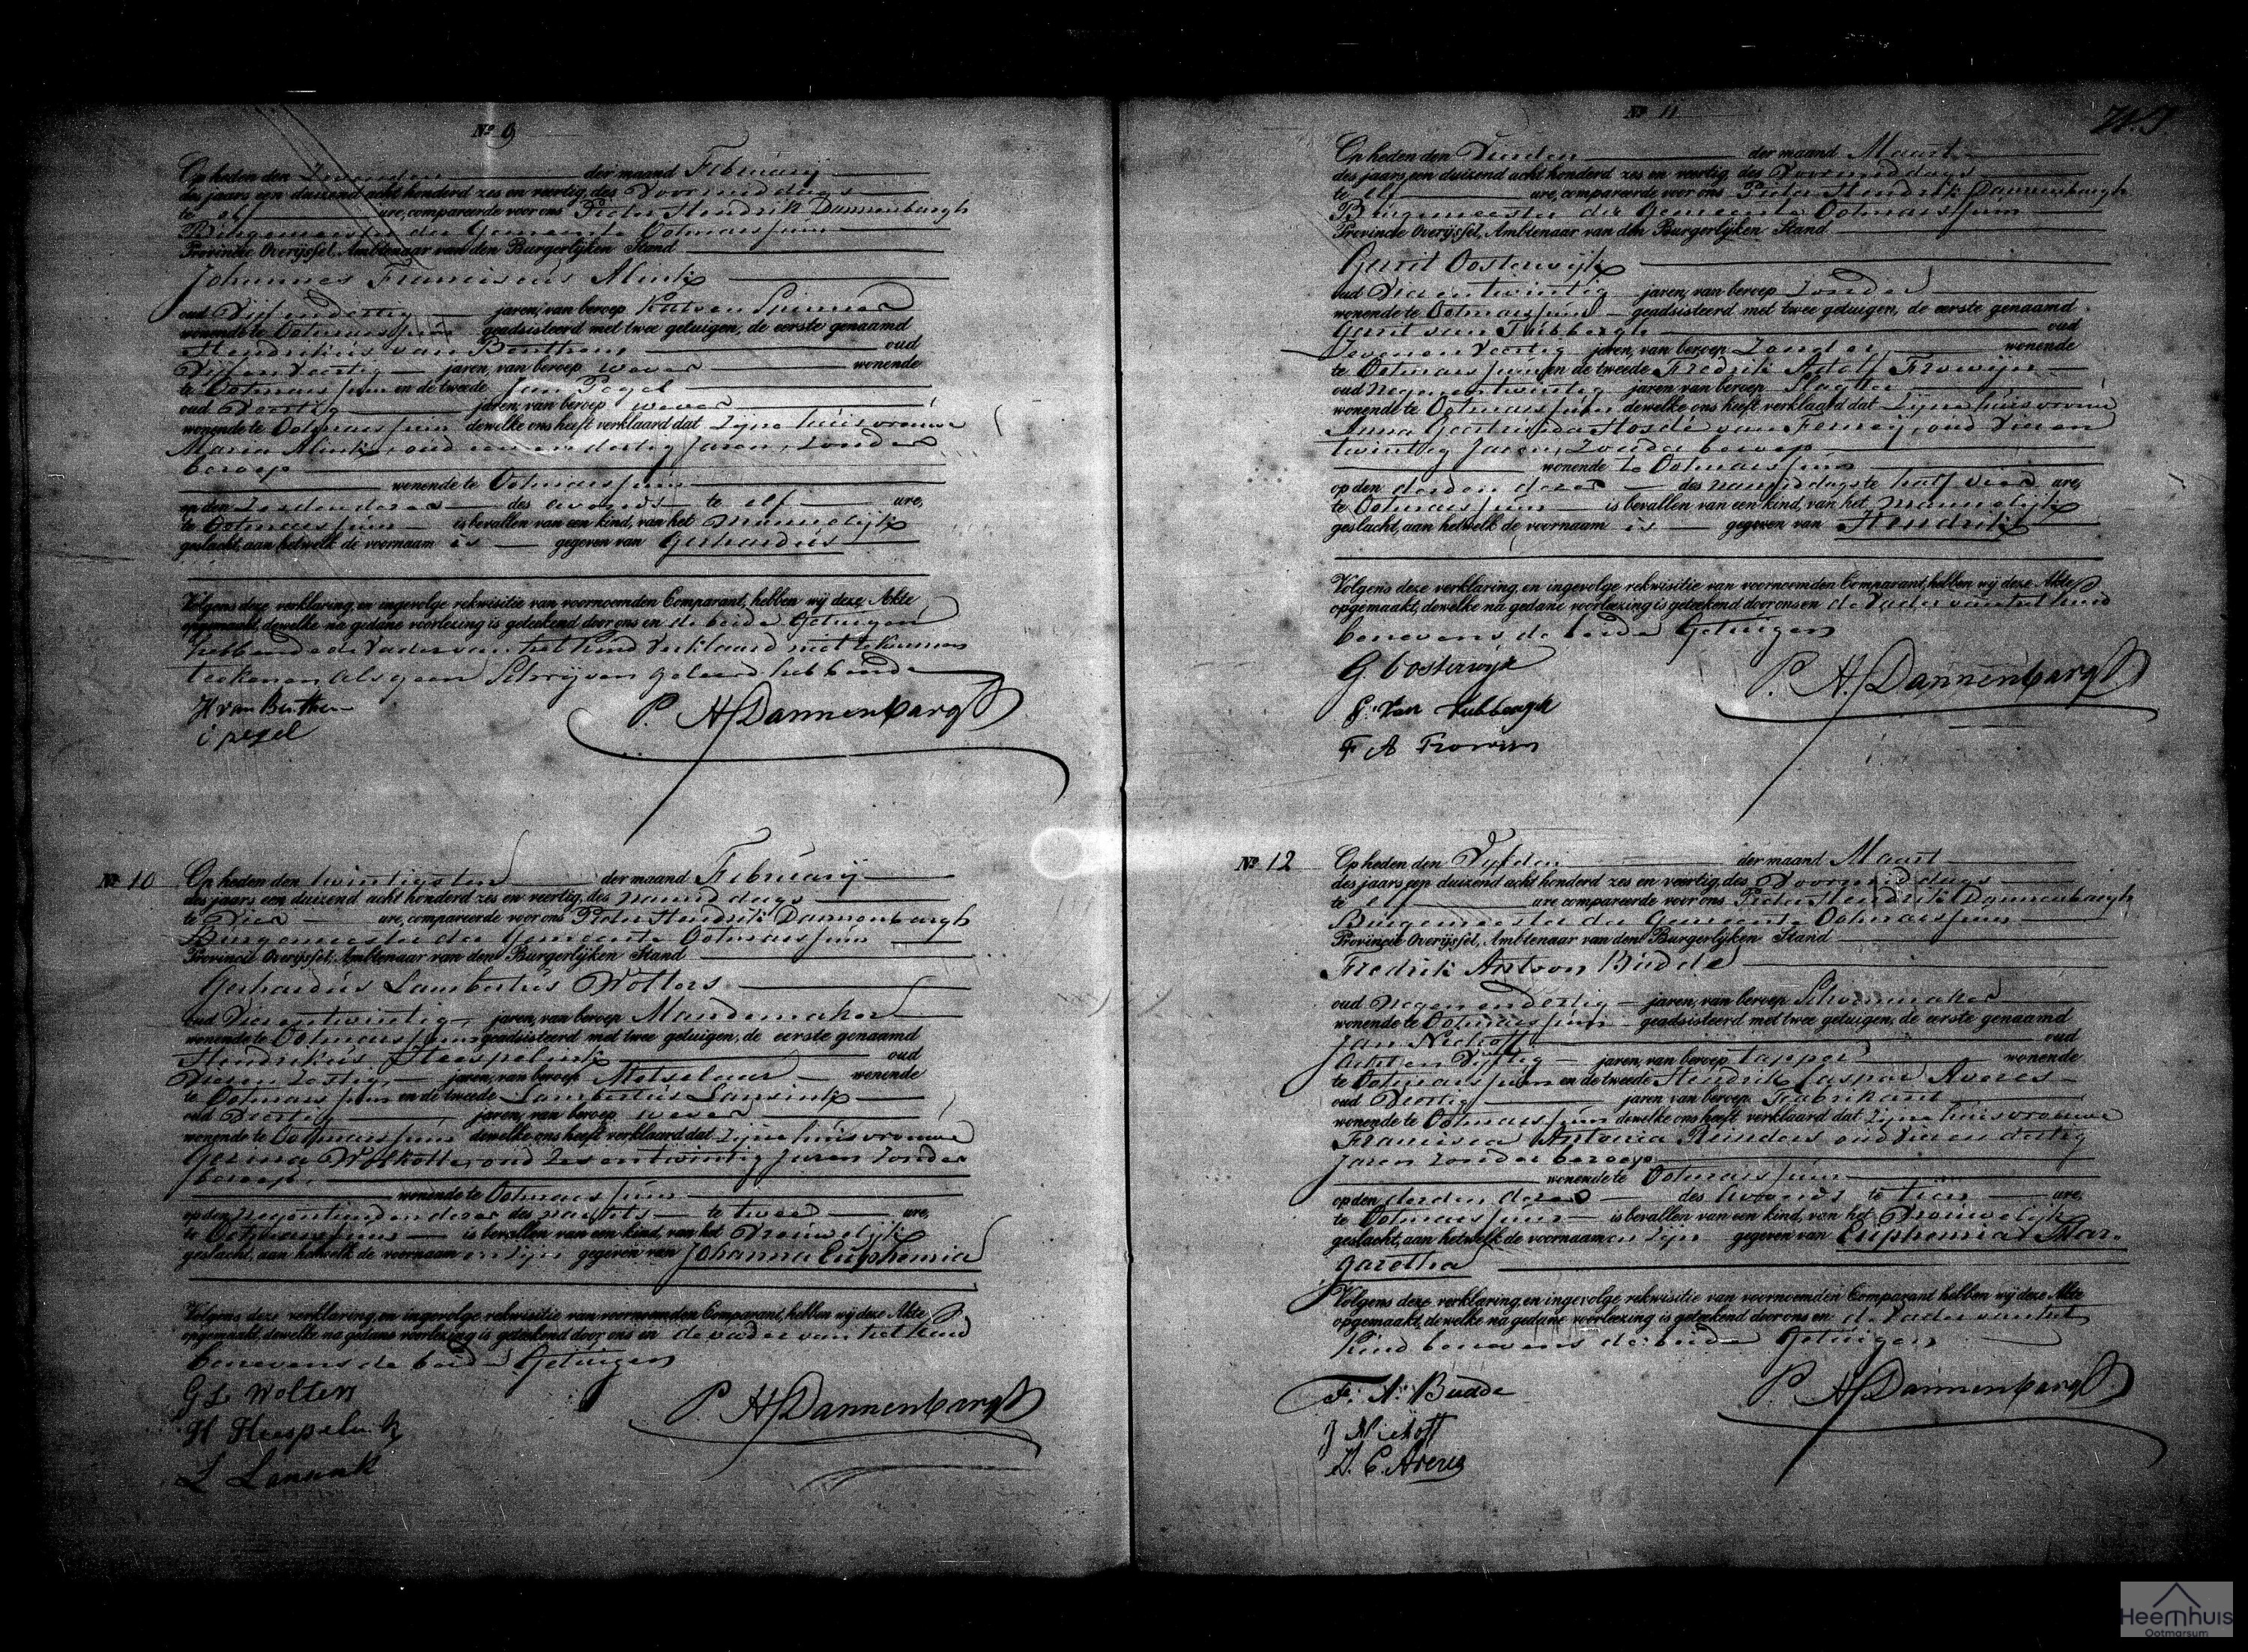 Nº 9
Op heden den Zevenden der maand Februarij
des jaars een duizend acht honderd zes en veertig, des Voormiddags
te elf ure, compareerde voor ons Pieter Hendrik Dannenbargh
Burgemeester der Gemeente Ootmarssum
Provincie Overijssel, Ambtenaar van den Burgerlijken Stand
Johannes Franciscus Alink
oud Vijfendertig jaren, van beroep Katoen Spinner
wonende te Ootmarssum geadsisteerd met twee getuigen, de eerste genaamd
Hendrikus van Benthem oud
Vijfenveertig jaren, van beroep wever wonende
te Ootmarssum en de tweede Jan Pegel
oud Veertig jaren, van beroep wever
wonende te Ootmarssum dewelke ons heeft verklaard dat Zijne huisvrouwe
Maria Alink, oud eenendertig Jaren, Zonder
beroep
wonende te Ootmarssum
op den dezer des avonds te elf ure,
te Ootmarssum is bevallen van een kind, van het Mannelijk
geslacht, aan hetwelk de voornaam is gegeven van Gerhardus
Volgens deze verklaring, en ingevolge rekwisitie van voornoemden Comparant, hebben wij deze Akte
opgemaakt, dewelke na gedane voorlezing is geteekend door ons en de beide Getuigen
hebbende de Vader van het kind Verklaard niet te kunnen
teekenen als geen Schrijven geleerd hebbende
H van Benthem
P. H. Dannenbargh
i pegel
Nº 10
Op heden den twintigsten der maand Februarij
des jaars een duizend acht honderd zes en veertig, des namiddags
te Vier ure, compareerde voor ons Pieter Hendrik Dannenbargh
Burgemeester der Gemeente Ootmarssum
Provincie Overijssel, Ambtenaar van den Burgerlijken Stand
Gerhardus Lambertus Wolters
oud Vierentwintig jaren, van beroep Mandemaker
wonende te Ootmarssum geadsisteerd met twee getuigen, de eerste genaamd
Hendrikus Heespelink oud
Vierenzestig jaren, van beroep Metselaar wonende
te Ootmarssum en de tweede Lambertus Lansink
oud Veertig jaren, van beroep wever
wonende te Ootmarssum dewelke ons heeft verklaard dat Zijne huisvrouwe
Gesina Wolkotte, oud Zesentwintig Jaren Zonder
beroep
wonende te Ootmarssum
op den negentienden dezer des nachts te twee ure,
te Ootmarssum is bevallen van een kind, van het Vrouwelijk
geslacht, aan hetwelk de voornaam en zijn gegeven van Johanna Euphemia
Volgens deze verklaring, en ingevolge rekwisitie van voornoemden Comparant, hebben wij deze Akte
opgemaakt, dewelke na gedane voorlezing is geteekend door ons en de vader van het kind
benevens de beide Getuigen
G L Wolters
P. H. Dannenbargh
H Heespelink
L Lansink
Nº 11
Op heden den Vierden der maand Maart
des jaars een duizend acht honderd zes en veertig, des Voormiddags
te elf ure, compareerde voor ons Pieter Hendrik Dannenbargh
Burgemeester der Gemeente Ootmarssum
Provincie Overijssel, Ambtenaar van den Burgerlijken Stand
Gerrit Oosterwijk
oud jaren, van beroep Zonder
wonende te Ootmarssum geadsisteerd met twee getuigen, de eerste genaamd
Gerrit van Tubbergh oud
Zevenenveertig jaren, van beroep Zonder wonende
te Ootmarssum en de tweede Fredrik Adolf Frowijn
oud negenentwintig jaren, van beroep Slagter
wonende te Ootmarssum dewelke ons heeft verklaard dat Zijne huisvrouw
Anna Geertruida van oud Vieren
twintig Jaren, Zonder beroep
wonende te Ootmarssum
op den derden dezer des namiddags te half vier ure,
te Ootmarssum is bevallen van een kind, van het Mannelijk
geslacht, aan hetwelk de voornaam is gegeven van Hendrik
Volgens deze verklaring, en ingevolge rekwisitie van voornoemden Comparant, hebben wij deze Akte
opgemaakt, dewelke na gedane voorlezing is geteekend door ons en de Vader van het kind
benevens de beide Getuigen
G Oosterwijk
P. H. Dannenbargh
G. Van Tubbergh
F A Frowijn
Nº 12
Op heden den Vijfden der maand Maart
des jaars een duizend acht honderd zes en veertig, des Voormiddags
te elf ure compareerde voor ons Pieter Hendrik Dannenbargh
Burgemeester der Gemeente Ootmarssum
Provincie Overijssel, Ambtenaar van den Burgerlijken Stand
Fredrik Antoon Budde
oud Negenendertig jaren, van beroep Schoenmaker
wonende te Ootmarssum geadsisteerd met twee getuigen, de eerste genaamd
Jan Niehoff oud
Achtenvijftig jaren, van beroep tapper wonende
te Ootmarssum en de tweede Hendrik Caspar Averes
oud Veertig jaren van beroep Fabrikant
wonende te Ootmarssum dewelke ons heeft verklaard dat Zijne huisvrouwe
Francisca Antonia Reinders oud Vierendertig
Jaren Zonder beroep
wonende te Ootmarssum
op den derden dezer des Avonds te tien ure,
te Ootmarssum is bevallen van een kind, van het Vrouwelijk
geslacht, aan hetwelk de voornaam en zijn gegeven van Euphemia Mar-
garetha
Volgens deze verklaring, en ingevolge rekwisitie van voornoemden Comparant hebben wij deze Akte
opgemaakt, dewelke na gedane voorlezing is geteekend door ons en de Vader van het
Kind benevens de beide Getuigen
F. A. Budde
P. H. Dannenbargh
J Niehoff
H. C. Averes
Heemhuis
Ootmarsum